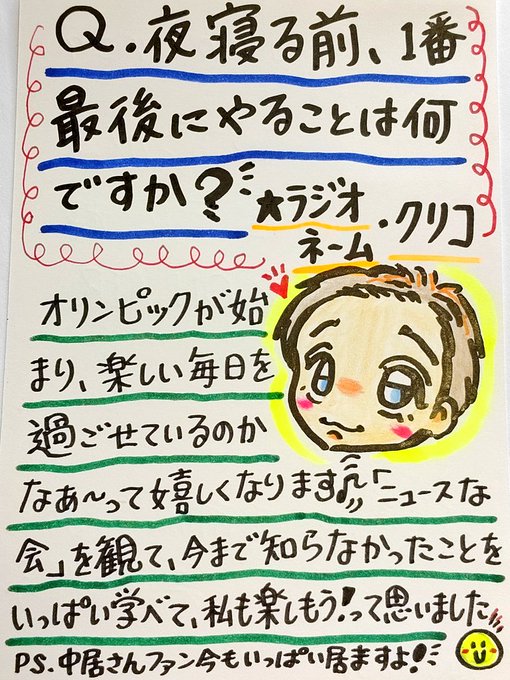 Q.夜寝る前、1番
最後にやることは何
ですか？
★ラジオ
ネーム・クリコ
オリンピックが始
まり、楽しい毎日を
過ごせているのか
なあ〜って嬉しくなります♪「ニュースな
会」を観て、今まで知らなかったことを
いっぱい学べて、私も楽しもう！って思いました
PS.中居さんファン今もいっぱい居ますよ！